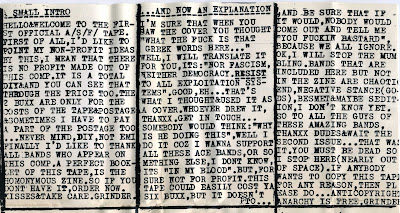 A SMALL INTRO
HELLO&WELCOME TO THE FIR-
ST OFFICIAL A/S/F/ TAPE.
FIRST OF ALL,I'D LIKE TO
POINT MY NON-PROFIT IDEAS
BY THIS,I MEAN THAT THERE
IS NO PROFIT MADE OUT OF
THIS COMP,IT IS A TOTAL
DIY&AND YOU CAN SEE THAT
THROUGH THE PRICE TOO,THE
BUXX ARE ONLY FOR THE
COSTS OF THE TAPE&POSTAGE
&SOMETIMES I HAVE TO PAY
A PART OF THE POSTAGE TOO
NEVER MIND,DIY,NOT EMI
FINALLY I'D LIKE TO THANK
ALL BANDS WHO APPEAR ON
THIS COMP,A PERFECT BOOK-
LET OF THIS TAPE,IS THE
HOMONYMOUS ZINE,SO IF YOU
DONT HAVE IT,ORDER NOW.
KISSES&TAKE CARE.GRINDER
...AND NOW AN EXPLANATION
I'M SURE THAT WHEN YOU
SAW THE COVER YOU THOUGHT
"WHAT THE FUCK IS THA
GREEK WORDS HERE..."
WELL,I WILL TRANSLATE IT
FOR YOU,ITS:"NOR FASCISM,
NEITHER DEMOCRACY,RESIST
TO ALL EXPLOITATION SYS-
TEMS".GOOD,EH...THAT'S
WHAT I THOUGHT&USED IT AS
A COVER,WHOEVER DREW IT,
THANXX,GET IN TOUCH...
SOMEBODY WOULD THINK:"WHY
IS HE DOING THIS",WELL,I
DO IT COZ I WANNA SUPPORT
ALL THESE ACE BANDS,OR SO
METHING ELSE,I DONT KNOW,
ITS "IN MY BLOOD".BUT,FOR
SURE NOT FOR PROFIT,THIS
TAPE COULD EASILY COST YA
SIX BUXX,BUT IT DOESN'T
PTO...
AND BE SURE THAT IF
IT WOULD,NOBODY WOULD
COME OUT AND TELL ME
"YOU FUCKIN' BASTARD",
BECAUSE WE ALL IGNORE.
OK,I WILL STOP THE MUM
BLING.BANDS THAT ARE
INCLUDED HERE BUT NOT
IN THE ZINE ARE CHAOTIC
END,NEGATIVE STANCE(GO-
OD),BESMET&MAYBE SEDIT-
ION,I DON'T KNOW YET,
SO TO ALL THE GUYS OF
THESE AMAZING BANDS,
THANXX DUDES&WAIT THE
SECOND ISSUE...THAT WAS
IT,YOU MUST BE DEAD SO
I STOP HERE(NEARLY OUT
OF SPACE).IF ANYBODY
WANTS TO COPY THIS TAPE
FOR ANY REASON,THEN PL
EASE DO...ANTICOPYRIGHT
ANARCHY IS FREE,GRINDER